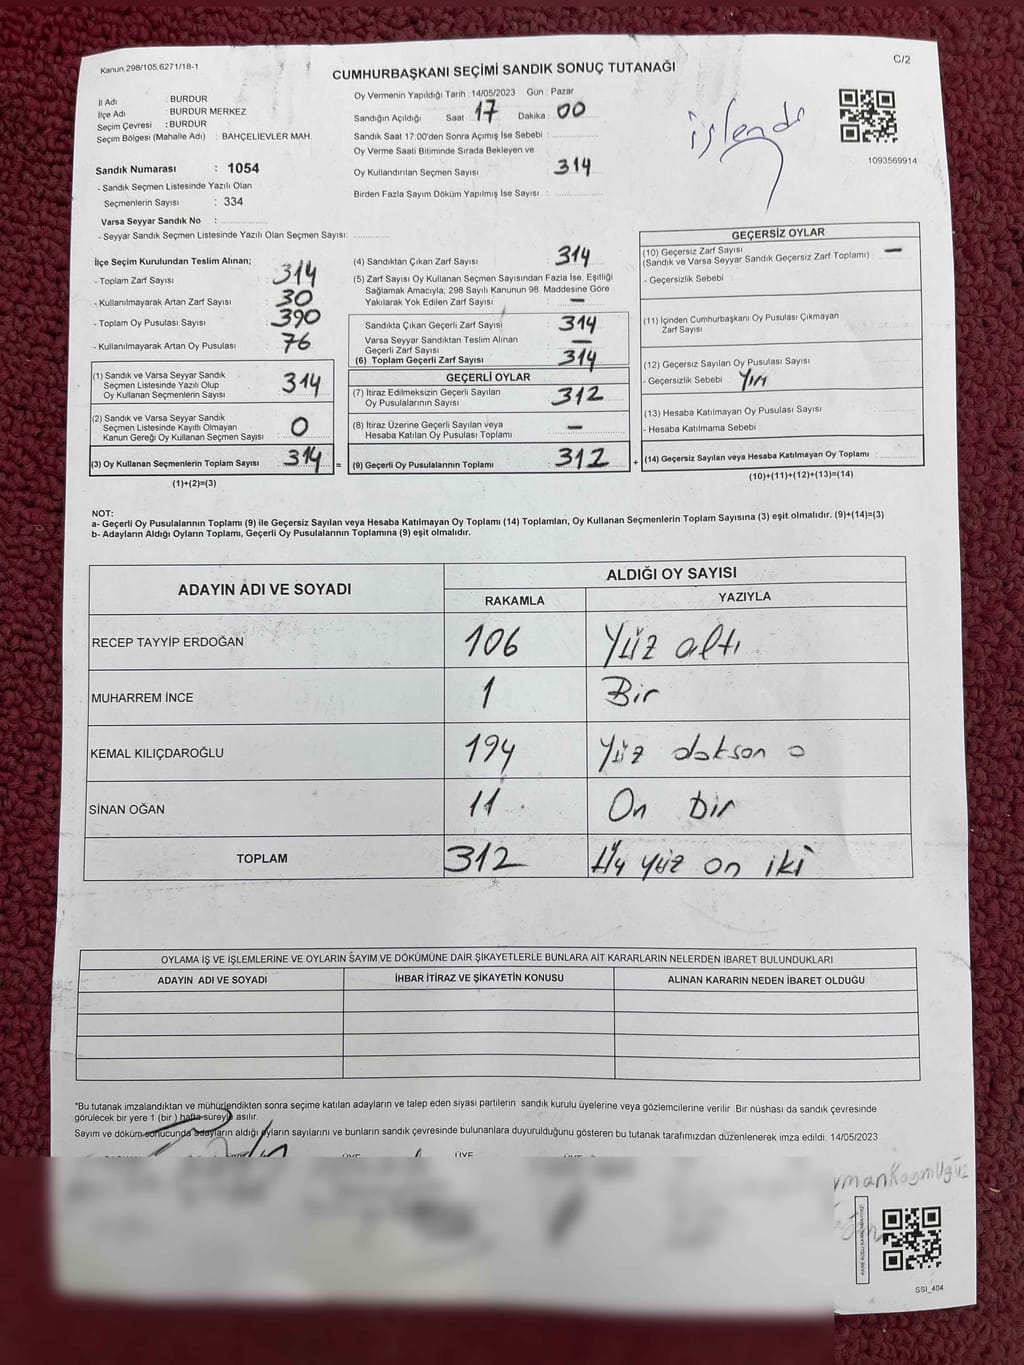 Kanun.298/105,6271/18-1
C/2
CUMHURBAŞKANI SEÇİMİ SANDIK SONUÇ TUTANAĞI
İl Adı : BURDUR
İlçe Adı : BURDUR MERKEZ
Seçim Çevresi : BURDUR
Seçim Bölgesi (Mahalle Adı) : BAHÇELİEVLER MAH.
Sandık Numarası : 1054
- Sandık Seçmen Listesinde Yazılı Olan
Seçmenlerin Sayısı : 334
Varsa Seyyar Sandık No :
- Seyyar Sandık Seçmen Listesinde Yazılı Olan Seçmen Sayısı:
Oy Vermenin Yapıldığı Tarih :14/05/2023 Gün : Pazar
Sandığın Açıldığı Saat 17 Dakika : 00
Sandık Saat 17.00'den Sonra Açımış İse Sebebi :
Oy Verme Saati Bitiminde Sırada Bekleyen ve
Oy Kullandırılan Seçmen Sayısı : 314
Birden Fazla Sayım Döküm Yapılmış İse Sayısı :
işlendi
1093569914
İlçe Seçim Kurulundan Teslim Alınan;
- Toplam Zarf Sayısı : 314
- Kullanılmayarak Artan Zarf Sayısı : 30
- Toplam Oy Pusulası Sayısı : 390
- Kullanılmayarak Artan Oy Pusulası : 76
(1) Sandık ve Varsa Seyyar Sandık
Seçmen Listesinde Yazılı Olup
Oy Kullanan Seçmenlerin Sayısı : 314
(2) Sandık ve Varsa Seyyar Sandık
Seçmen Listesinde Kayıtlı Olmayan
Kanun Gereği Oy Kullanan Seçmen Sayısı : 0
(3) Oy Kullanan Seçmenlerin Toplam Sayısı : 314 =
(1)+(2)=(3)
(4) Sandıktan Çıkan Zarf Sayısı : 314
(5) Zarf Sayısı Oy Kullanan Seçmen Sayısından Fazla İse, Eşitliği
Sağlamak Amacıyla, 298 Sayılı Kanunun 98. Maddesine Göre
Yakılarak Yok Edilen Zarf Sayısı : —
Sandıkta Çıkan Geçerli Zarf Sayısı : 314
Varsa Seyyar Sandıktan Teslim Alınan
Geçerli Zarf Sayısı : —
(6) Toplam Geçerli Zarf Sayısı : 314
GEÇERLİ OYLAR
(7) İtiraz Edilmeksizin Geçerli Sayılan
Oy Pusulalarının Sayısı : 312
(8) İtiraz Üzerine Geçerli Sayılan veya
Hesaba Katılan Oy Pusulası Toplamı : —
(9) Geçerli Oy Pusulalarının Toplamı : 312 +
GEÇERSİZ OYLAR
(10) Geçersiz Zarf Sayısı —
(Sandık ve Varsa Seyyar Sandık Geçersiz Zarf Toplamı) :
- Geçersizlik Sebebi :
(11) İçinden Cumhurbaşkanı Oy Pusulası Çıkmayan
Zarf Sayısı :
(12) Geçersiz Sayılan Oy Pusulası Sayısı :
- Geçersizlik Sebebi :
(13) Hesaba Katılmayan Oy Pusulası Sayısı :
- Hesaba Katılmama Sebebi :
(14) Geçersiz Sayılan veya Hesaba Katılmayan Oy Toplamı :
(10)+(11)+(12)+(13)=(14)
NOT:
a- Geçerli Oy Pusulalarının Toplamı (9) ile Geçersiz Sayılan veya Hesaba Katılmayan Oy Toplamı (14) Toplamları, Oy Kullanan Seçmenlerin Toplam Sayısına (3) eşit olmalıdır. (9)+(14)=(3)
b- Adayların Aldığı Oyların Toplamı, Geçerli Oy Pusulalarının Toplamına (9) eşit olmalıdır.
ADAYIN ADI VE SOYADI
ALDIĞI OY SAYISI
RAKAMLA YAZIYLA
RECEP TAYYİP ERDOĞAN 106 Yüz altı
MUHARREM İNCE 1 Bir
KEMAL KILIÇDAROĞLU 194 Yüz doksan
SİNAN OĞAN 11 On bir
TOPLAM 312 yüz on iki
OYLAMA İŞ VE İŞLEMLERİNE VE OYLARIN SAYIM VE DÖKÜMÜNE DAİR ŞİKAYETLERLE BUNLARA AİT KARARLARIN NELERDEN İBARET BULUNDUKLARI
ADAYIN ADI VE SOYADI İHBAR İTİRAZ VE ŞİKAYETİN KONUSU ALINAN KARARIN NEDEN İBARET OLDUĞU
*Bu tutanak imzalandıktan ve mühürlendikten sonra seçime katılan adayların ve talep eden siyasi partilerin sandık kurulu üyelerine veya gözlemcilerine verilir. Bir nüshası da sandık çevresinde
görülecek bir yere 1 (bir ) hafta süreyle asılır.
Sayım ve döküm sonucunda adayların aldığı oyların sayılarını ve bunların sandık çevresinde bulunanlara duyurulduğunu gösteren bu tutanak tarafımızdan düzenlenerek imza edildi. 14/05/2023
ÜYE ÜYE ÜYE
SSI_404